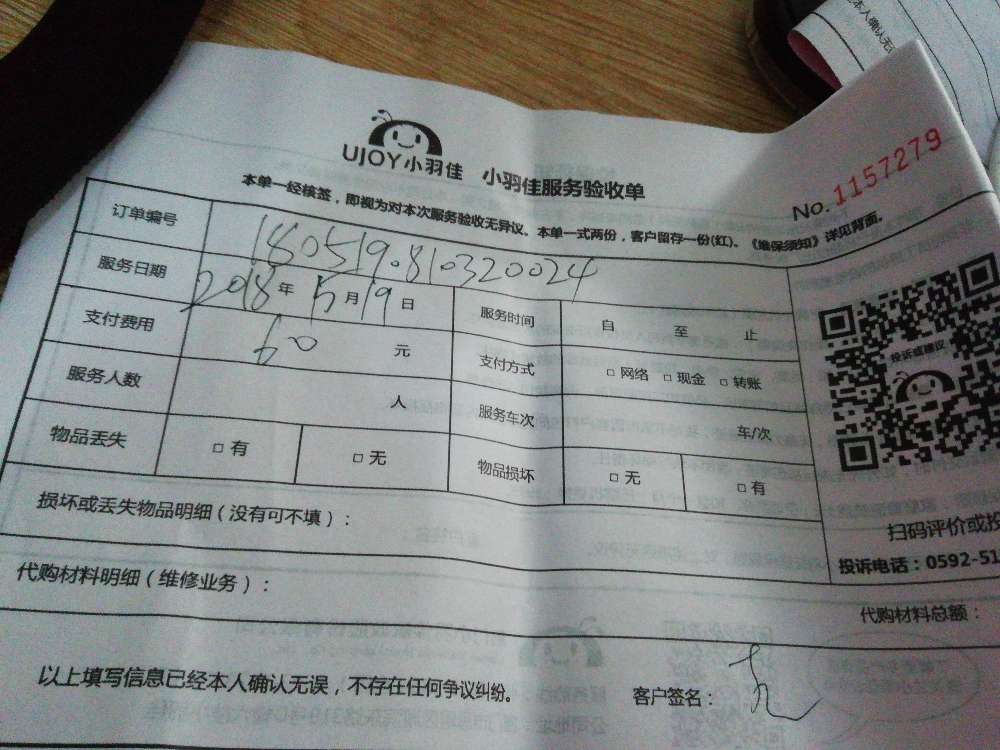 UJOY小羽佳 小羽佳服务验收单
No. 1157279
本单一经核签，即视为对本次服务验收无异议。本单一式两份，客户留存一份(红)。《维保须知》详见背面。
订单编号 180519.810320024
服务日期 2018年5月19日 服务时间 自 至 止
支付费用 60 元 支付方式 □ 网络 □ 现金 □ 转账
服务人数 人 服务车次 车/次
物品丢失 □ 有 □ 无 物品损坏 □ 无 □ 有
投诉或建议
扫码评价或投
投诉电话：0592-51
损坏或丢失物品明细（没有可不填）：
代购材料明细（维修业务）：
代购材料总额：
以上填写信息已经本人确认无误，不存在任何争议纠纷。 客户签名：